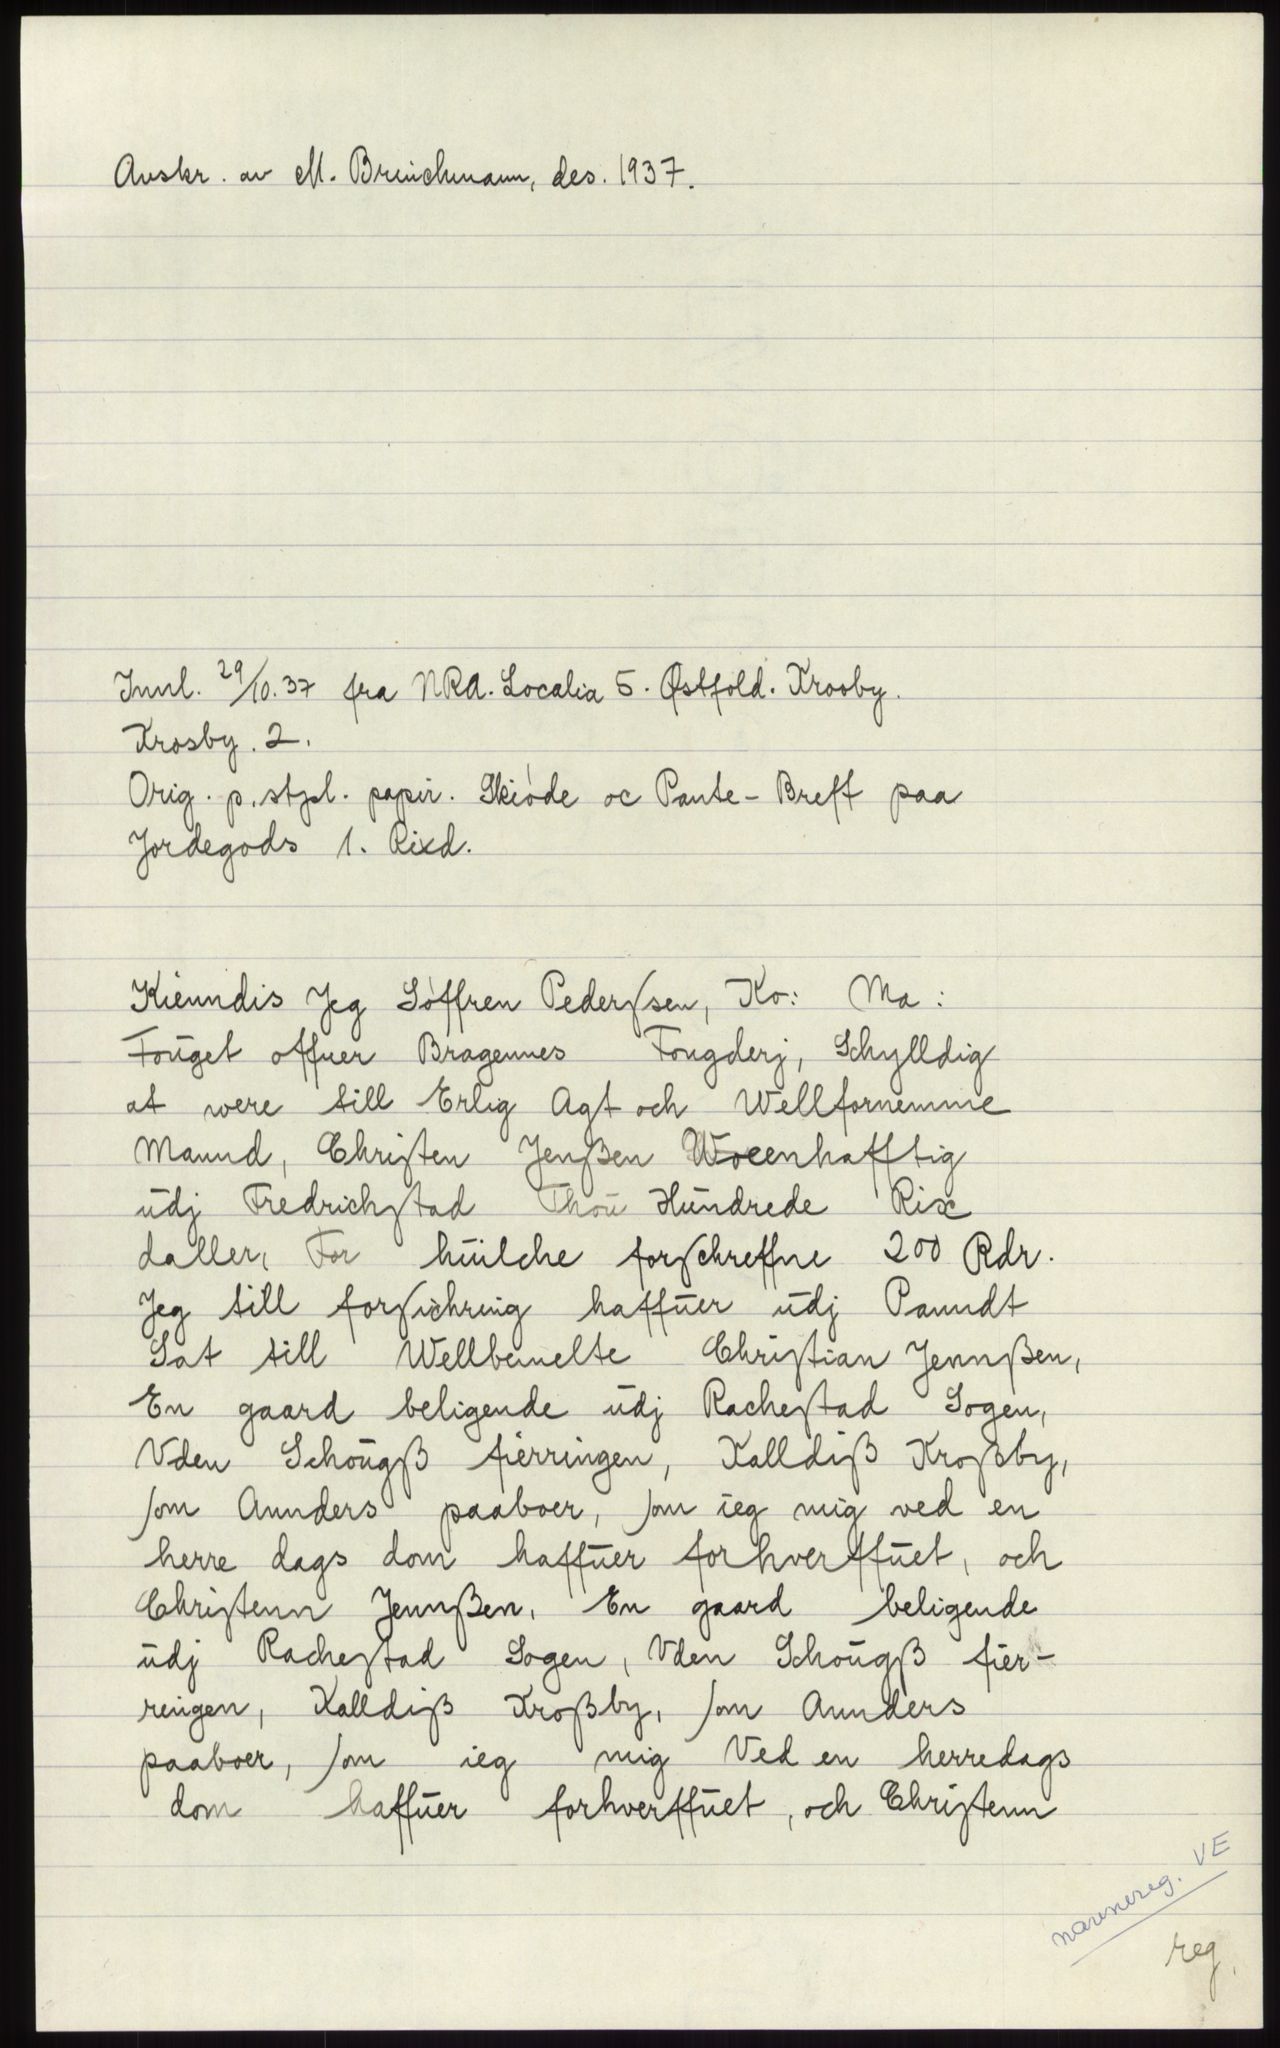 Avskr. av M. Brinchmann, des. 1937.
Innl. 29/10.37 fra NRA. Localia 5. Østfold. Krosby.
Krosby. 2.
Orig. p. stpl. papir. Skiøde oc Pante-Breff paa
Jordegods 1. Rixd.
Kienndis Jeg Søffren Pederssen, Ko: Ma:
Foŭget offuer Bragennes Fougderj, Schylldig
at were till Erlig Agt och Wellfornemme
Mannd, Christen Jenßen Woeenhafftig
ŭdj Fredrichstad Thoŭ Hŭndrede Rix
daller, For hŭilche forschreffne 200 Rdr.
Jeg till forsichring haffŭer ŭdj Panndt
Sat till Wellbemelte Christian Jennßen,
En gaard beligende ŭdj Rachestad Sogen,
Vden Schoŭgß fierringen, Kalldiß Kroßby,
som Annders paaboer, som ieg mig ved en
herre dags dom haffŭer forhverffŭet, och
Christenn Jennßen, En gaard beligende
ŭdj Rachestad Sogen, Vden Schoŭgß fier-
ringen, Kalldiß Kroßby, som Annders
paaboer, som ieg mig Ved en herredags
dom haffŭer forhverffŭet, och Christenn
navnereg. VE
reg.